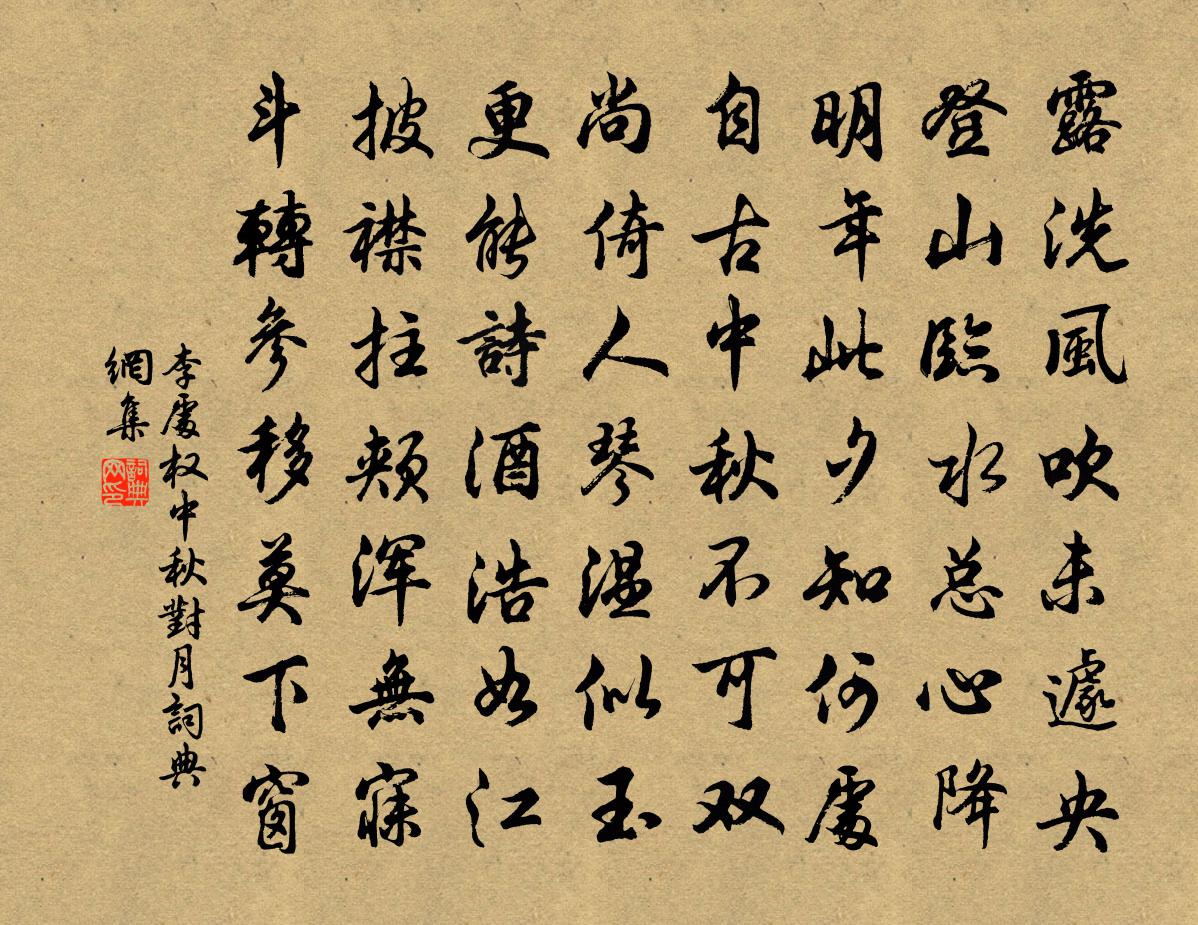 露洗風吹未遽央
登山臨水总心降
明年此夕知何處
自古中秋不可双
尚倚人琴温似玉
更能詩酒浩如江
披襟拄頰渾無寐
斗轉參移莫下窗
李處权中秋對月詞典
網集
詞典
网印